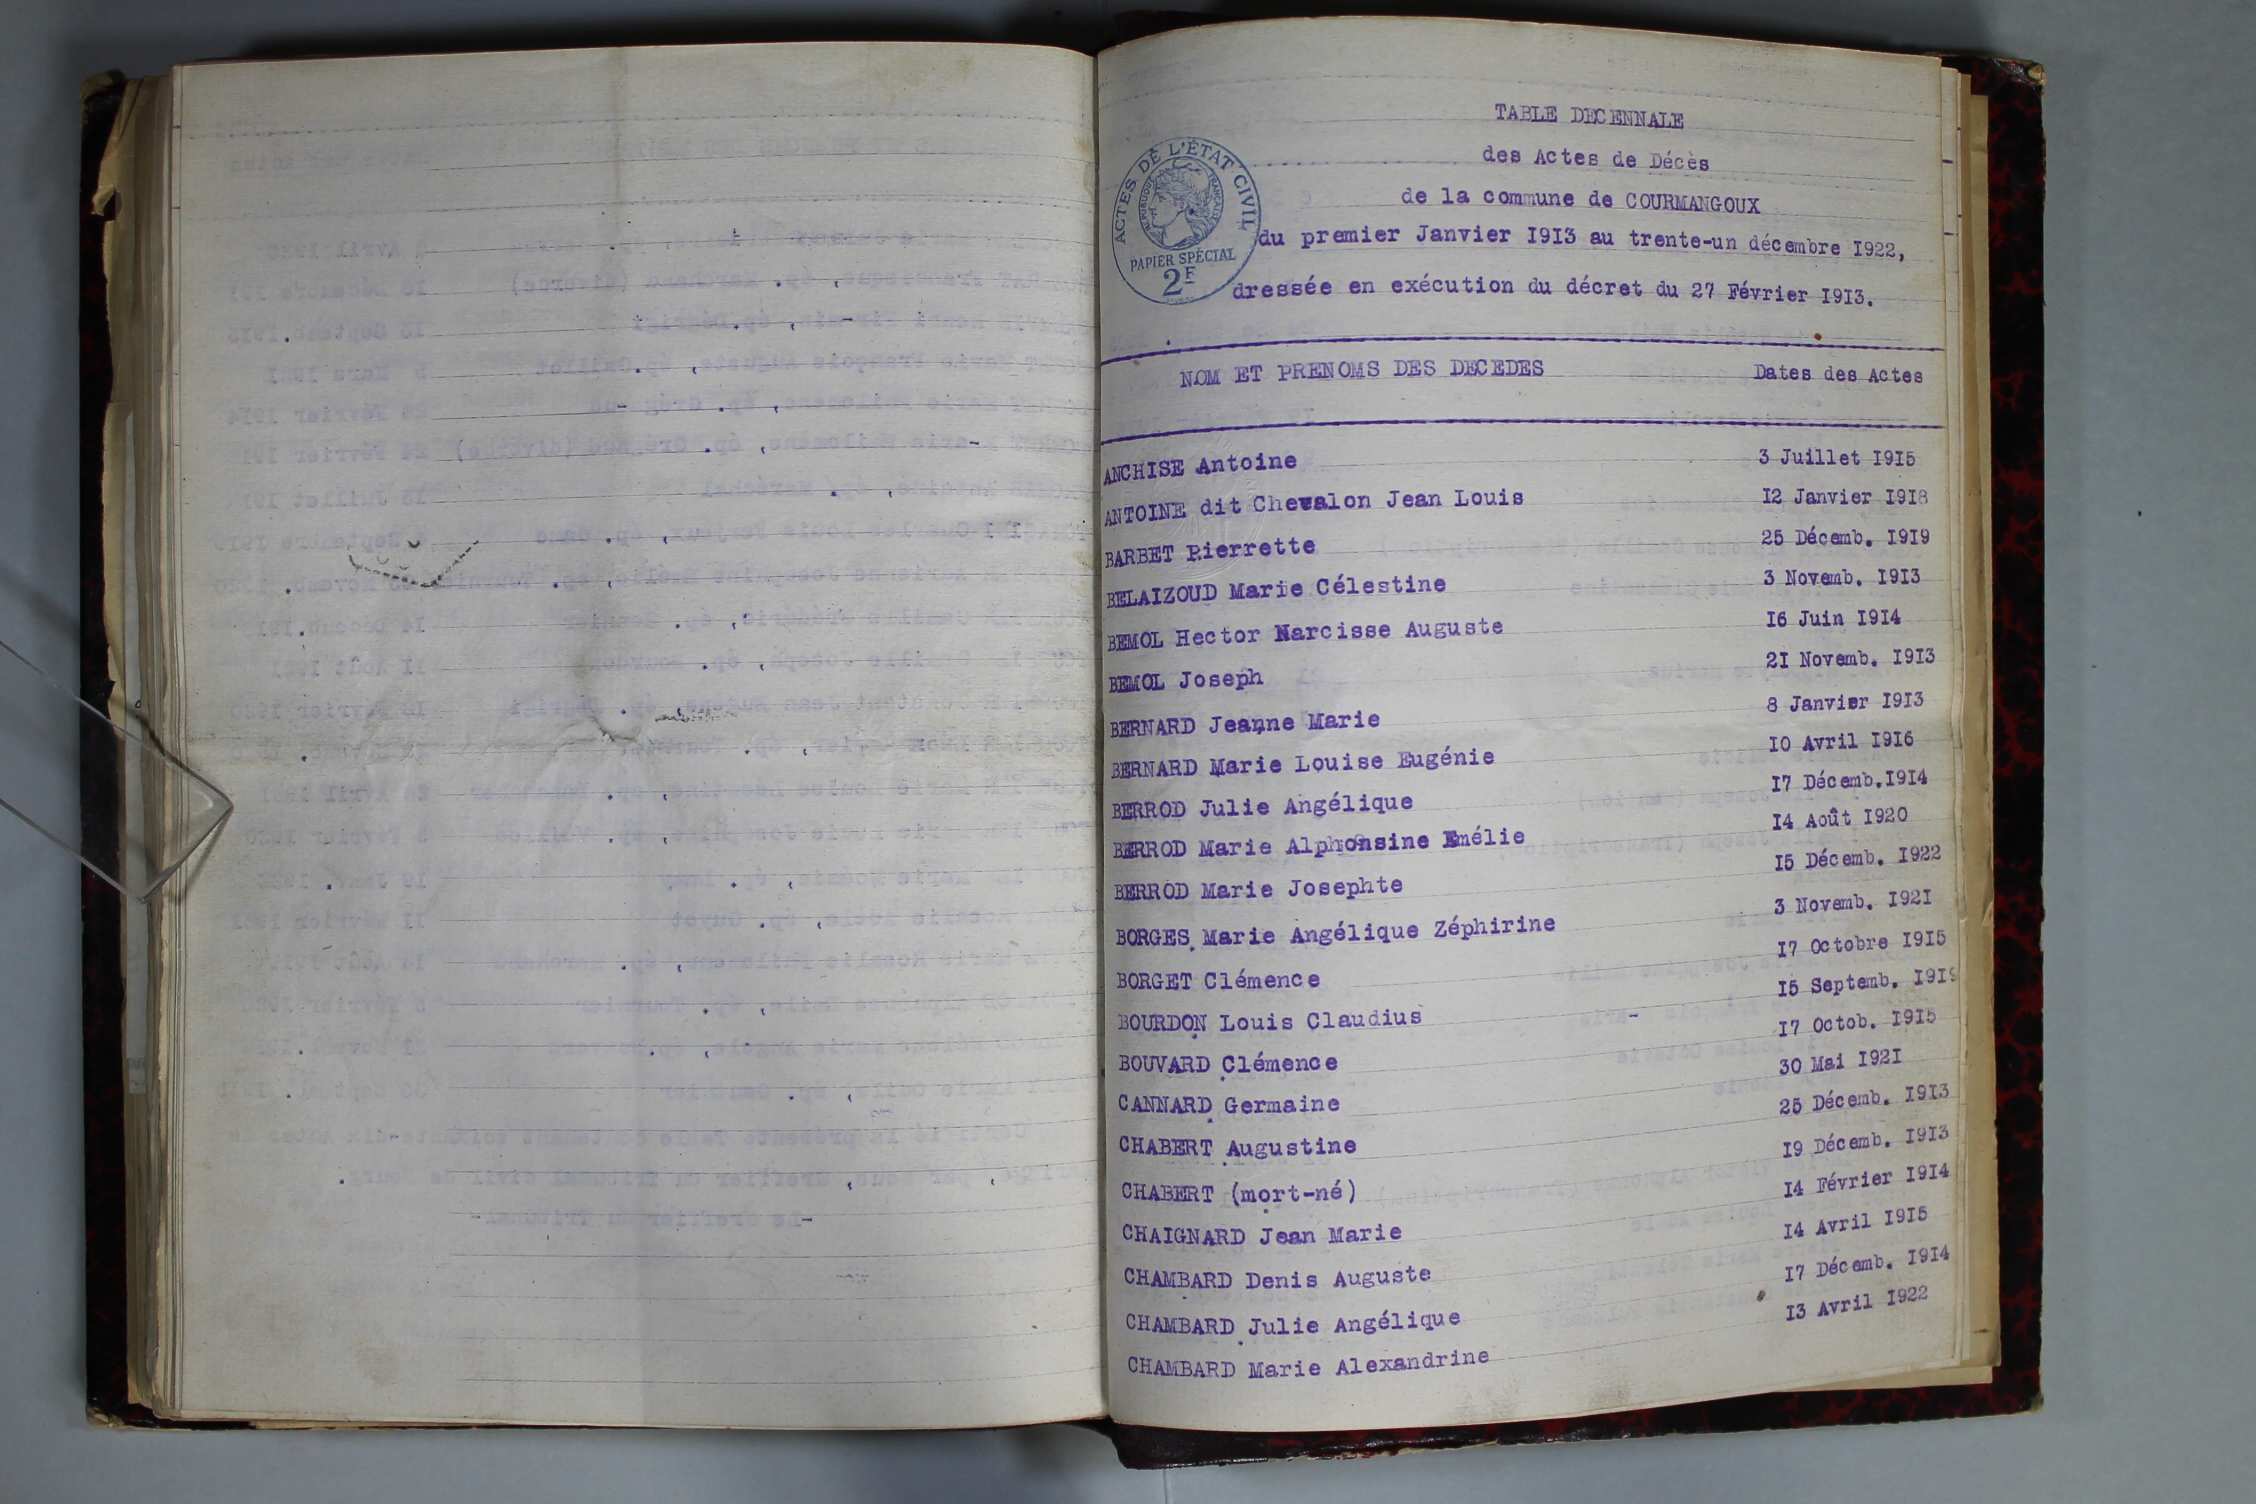 TABLE DECENNALE
des Actes de Décès
de la commune de COURMANGOUX
du premier Janvier I9I3 au trente-un décembre I922,
dressée en exécution du décret du 27 Février I9I3.
ACTES DE L'ÉTAT CIVIL
REPUBLIQUE FRANÇAISE
PAPIER SPÉCIAL
2F
NOM ET PRENOMS DES DECEDES Dates des Actes
ANCHISE Antoine 3 Juillet I9I5
ANTOINE dit Chevalon Jean Louis I2 Janvier I9I8
BARBET Pierrette 25 Décemb. I9I9
BELAIZOUD Marie Célestine 3 Novemb. I9I3
BEMOL Hector Narcisse Auguste I6 Juin I9I4
BEMOL Joseph 2I Novemb. I9I3
BERNARD Jeanne Marie 8 Janvier I9I3
BERNARD Marie Louise Eugénie I0 Avril I9I6
BERROD Julie Angélique I7 Décemb.I9I4
BERROD Marie Alphonsine Emélie I4 Août I920
BERROD Marie Josephte I5 Décemb. I922
BORGES Marie Angélique Zéphirine 3 Novemb. I92I
BORGET Clémence I7 Octobre I9I5
BOURDON Louis Claudius I5 Septemb. I9I9
BOUVARD Clémence I7 Octob. I9I5
CANNARD Germaine 30 Mai I92I
CHABERT Augustine 25 Décemb. I9I3
CHABERT (mort-né) I9 Décemb. I9I3
CHAIGNARD Jean Marie I4 Février I9I4
CHAMBARD Denis Auguste I4 Avril I9I5
CHAMBARD Julie Angélique I7 Décemb. I9I4
CHAMBARD Marie Alexandrine I3 Avril I922